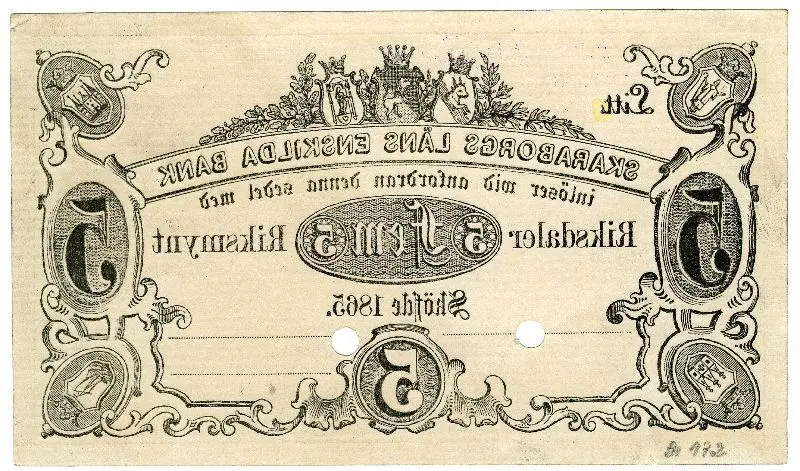 Litt.
SKARABORGS LÄNS ENSKILDA BANK
inlöser wid anfordran denna sedel med
5 Riksdaler 5 Fem 5 Riksmynt 5
Sköfde 1865.
5
Br 172